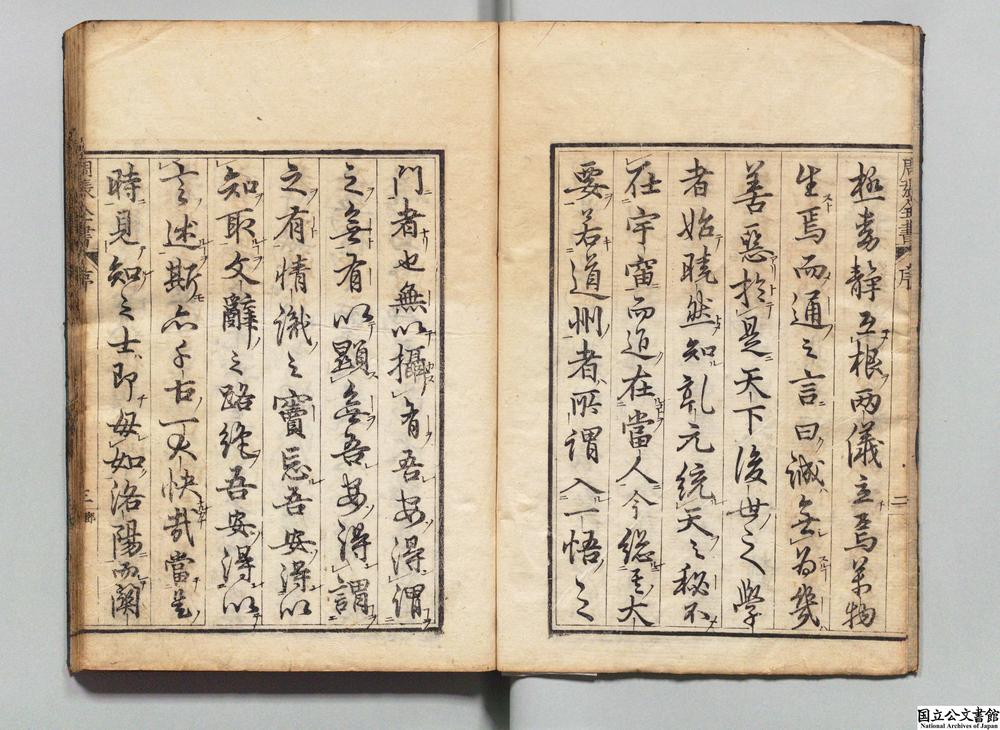 極動靜互根兩儀立焉萬物
生焉而通之言曰誠無為幾
善惡於是天下後世之學
者始曉然知乳元統天之秘不
在宇宙而迫在當人今總其大
要若道州者所謂入一悟之
周張全書
序
二
門者也無以攝有吾安得謂
之無有以顯無吾安得謂
之有情識之竇忘吾安得以
知取文辭之路絶吾安得以
言述斯亦千古一大快哉當是
時見知之士即毋如洛陽而關
周張全書
序
三
国立公文書館
National Archives of Japan